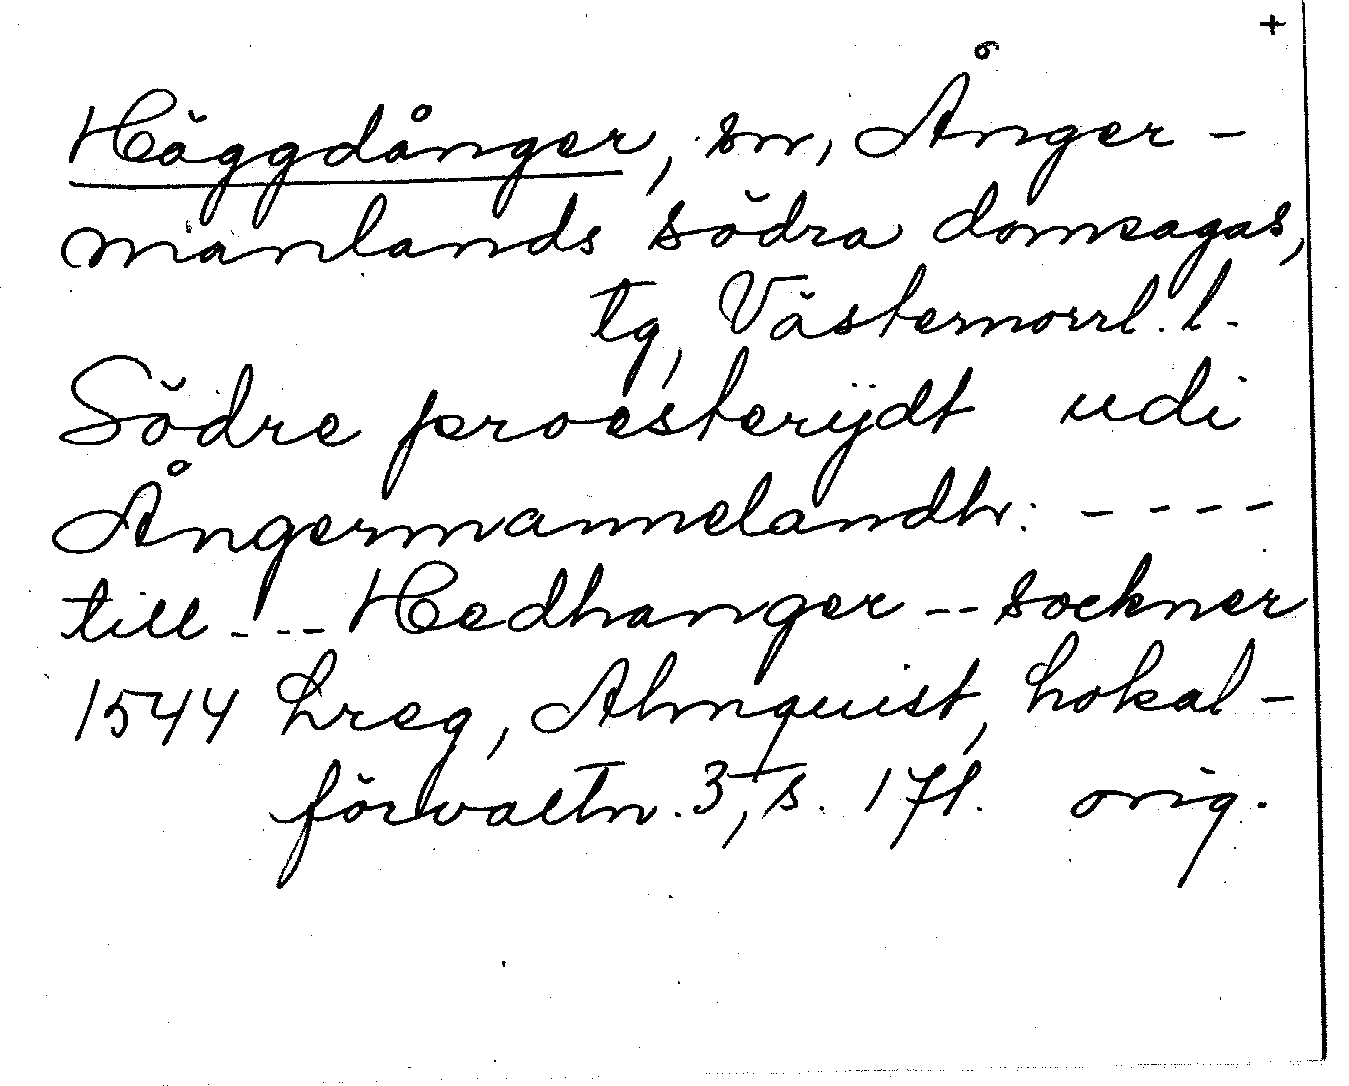 +
Häggdånger, sn, Ånger-
manlands södra domsagas,
tg, Västernorrl. l.
Södre proesterijdt udi
Ångermannelandh: ----
till --- Hedhanger -- sockner
1544 Lreg, Almquist, Lokal-
förvaltn. 3, s. 171. orig.